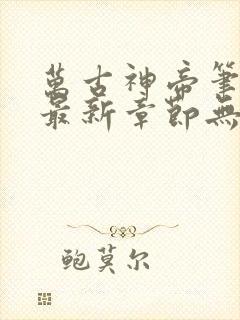 萬古神帝筆
最新章節無
鲍莫尔